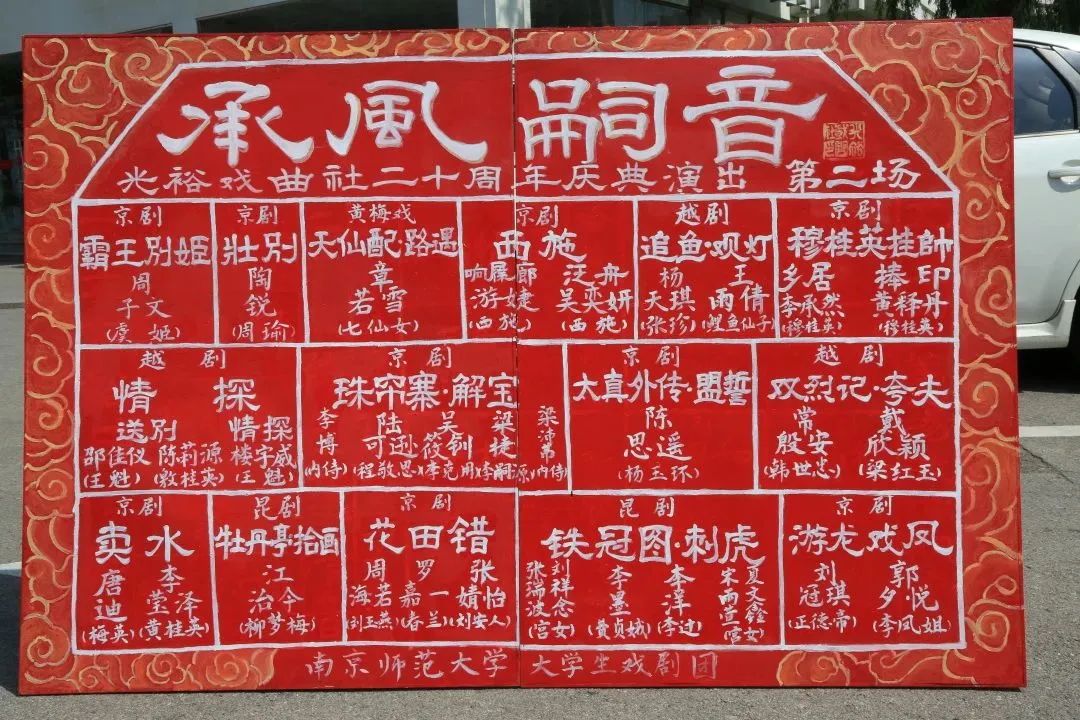 承風嗣音
光裕戏曲社二十周年庆典演出 第二场
京剧
霸王别姬
周子文
(虞姬)
京剧
壮别
陶锐
(周瑜)
黄梅戏
天仙配·路遇
章若雪
(七仙女)
京剧
西施
响屟廊 泛舟
游婕 吴奕妍
(西施) (西施)
越剧
追鱼·观灯
杨天琪 王雨倩
(张珍) (鲤鱼仙子)
京剧
穆桂英挂帥
乡居 捧印
李承然 黄释丹
(穆桂英) (穆桂英)
越剧
情探
送别 情探
邵佳仪 陈莉源 楼宇威
(王魁) (敫桂英) (王魁)
京剧
珠帘寨·解宝
李博 陆可逊 吴筱钏 梁捷 梁沛弟
(内侍) (程敬思) (李克用) (李嗣源) (内侍)
京剧
太真外传·盟誓
陈思遥
(杨玉环)
越剧
双烈记·夸夫
常殷安 戴欣颖
(韩世忠) (梁红玉)
京剧
卖水
唐迪 李莹泽
(梅英) (黄桂英)
昆剧
牡丹亭拾画
江治今
(柳梦梅)
京剧
花田错
周海若 罗嘉一 张婧怡
(刘玉燕) (春兰) (刘安人)
昆剧
铁冠图·刺虎
张瑞波 刘祥念 李墨 李泽 宋雨萱 夏文鑫
(宫女) (费贞娥) (李过) (宫女)
京剧
游龙戏凤
刘冠琪 郭夕悦
(正德帝) (李凤姐)
南京师范大学 大学生戏剧团